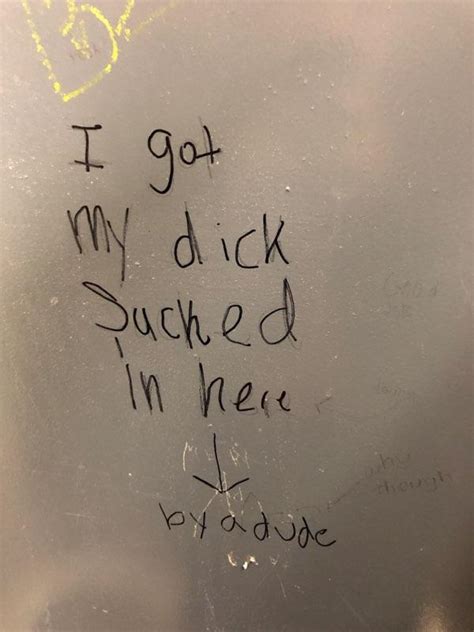 I got
my dick
Sucked
in here
by a dude
Good
Job
why
though